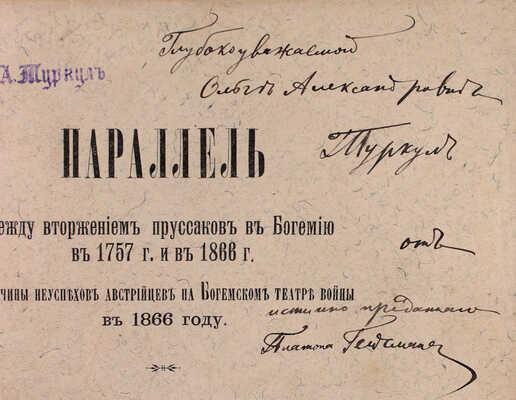 Глубокоуважаемой
А. Туркулъ
Ольгѣ Александровнѣ
ПАРАЛЛЕЛЬ
Туркулъ
ежду вторженіемъ пруссаковъ въ Богемію
въ 1757 г. и въ 1866 г.
отъ
чины неуспѣховъ австрійцевъ на Богемскомъ театрѣ войны
истинно преданнаго
въ 1866 году.
Платона